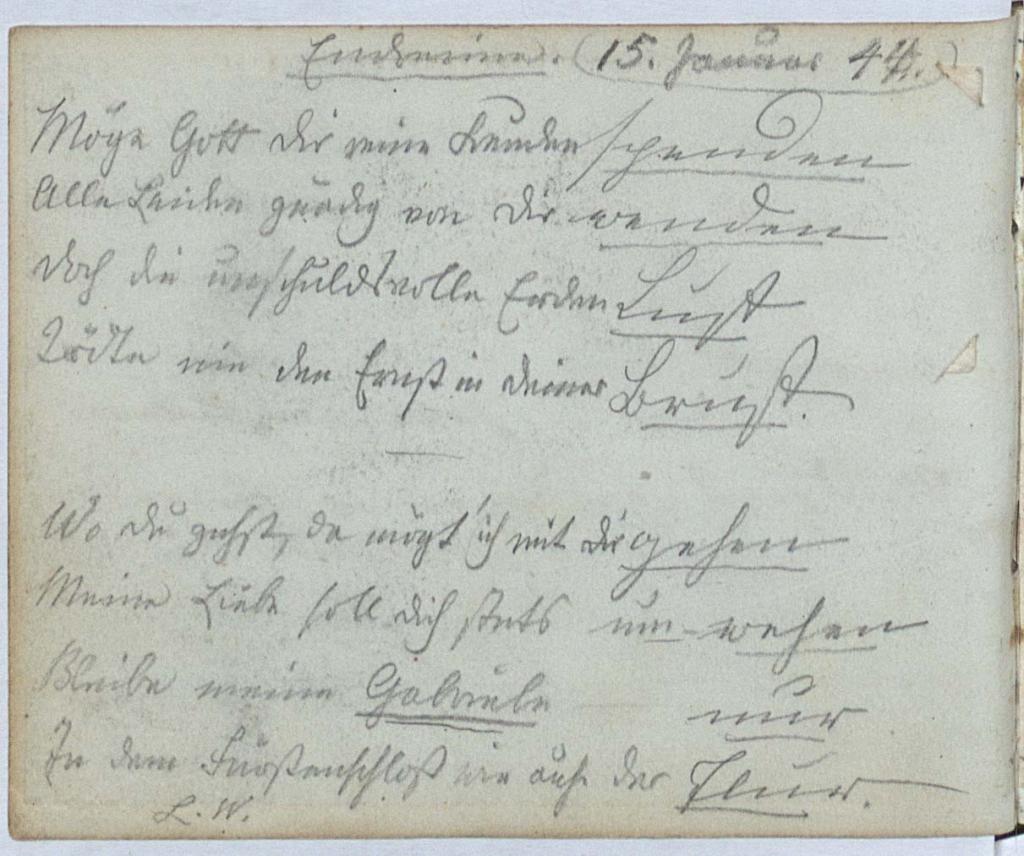 Endreime. (15. Januar 44.)
Möge Gott dir reine Freuden spenden
Alle Leiden gnädig von dir wenden
Doch die unschuldsvolle Erden Lust
Tödte nie den Ernst in deiner Brust.
Wo du gehst, da mögt' ich mit dir gehen
Meine Liebe soll dich stets um-wehen
Bleibe meine Gabriele nur
In dem Fürstenschloß wie auf der Flur.
L. W.